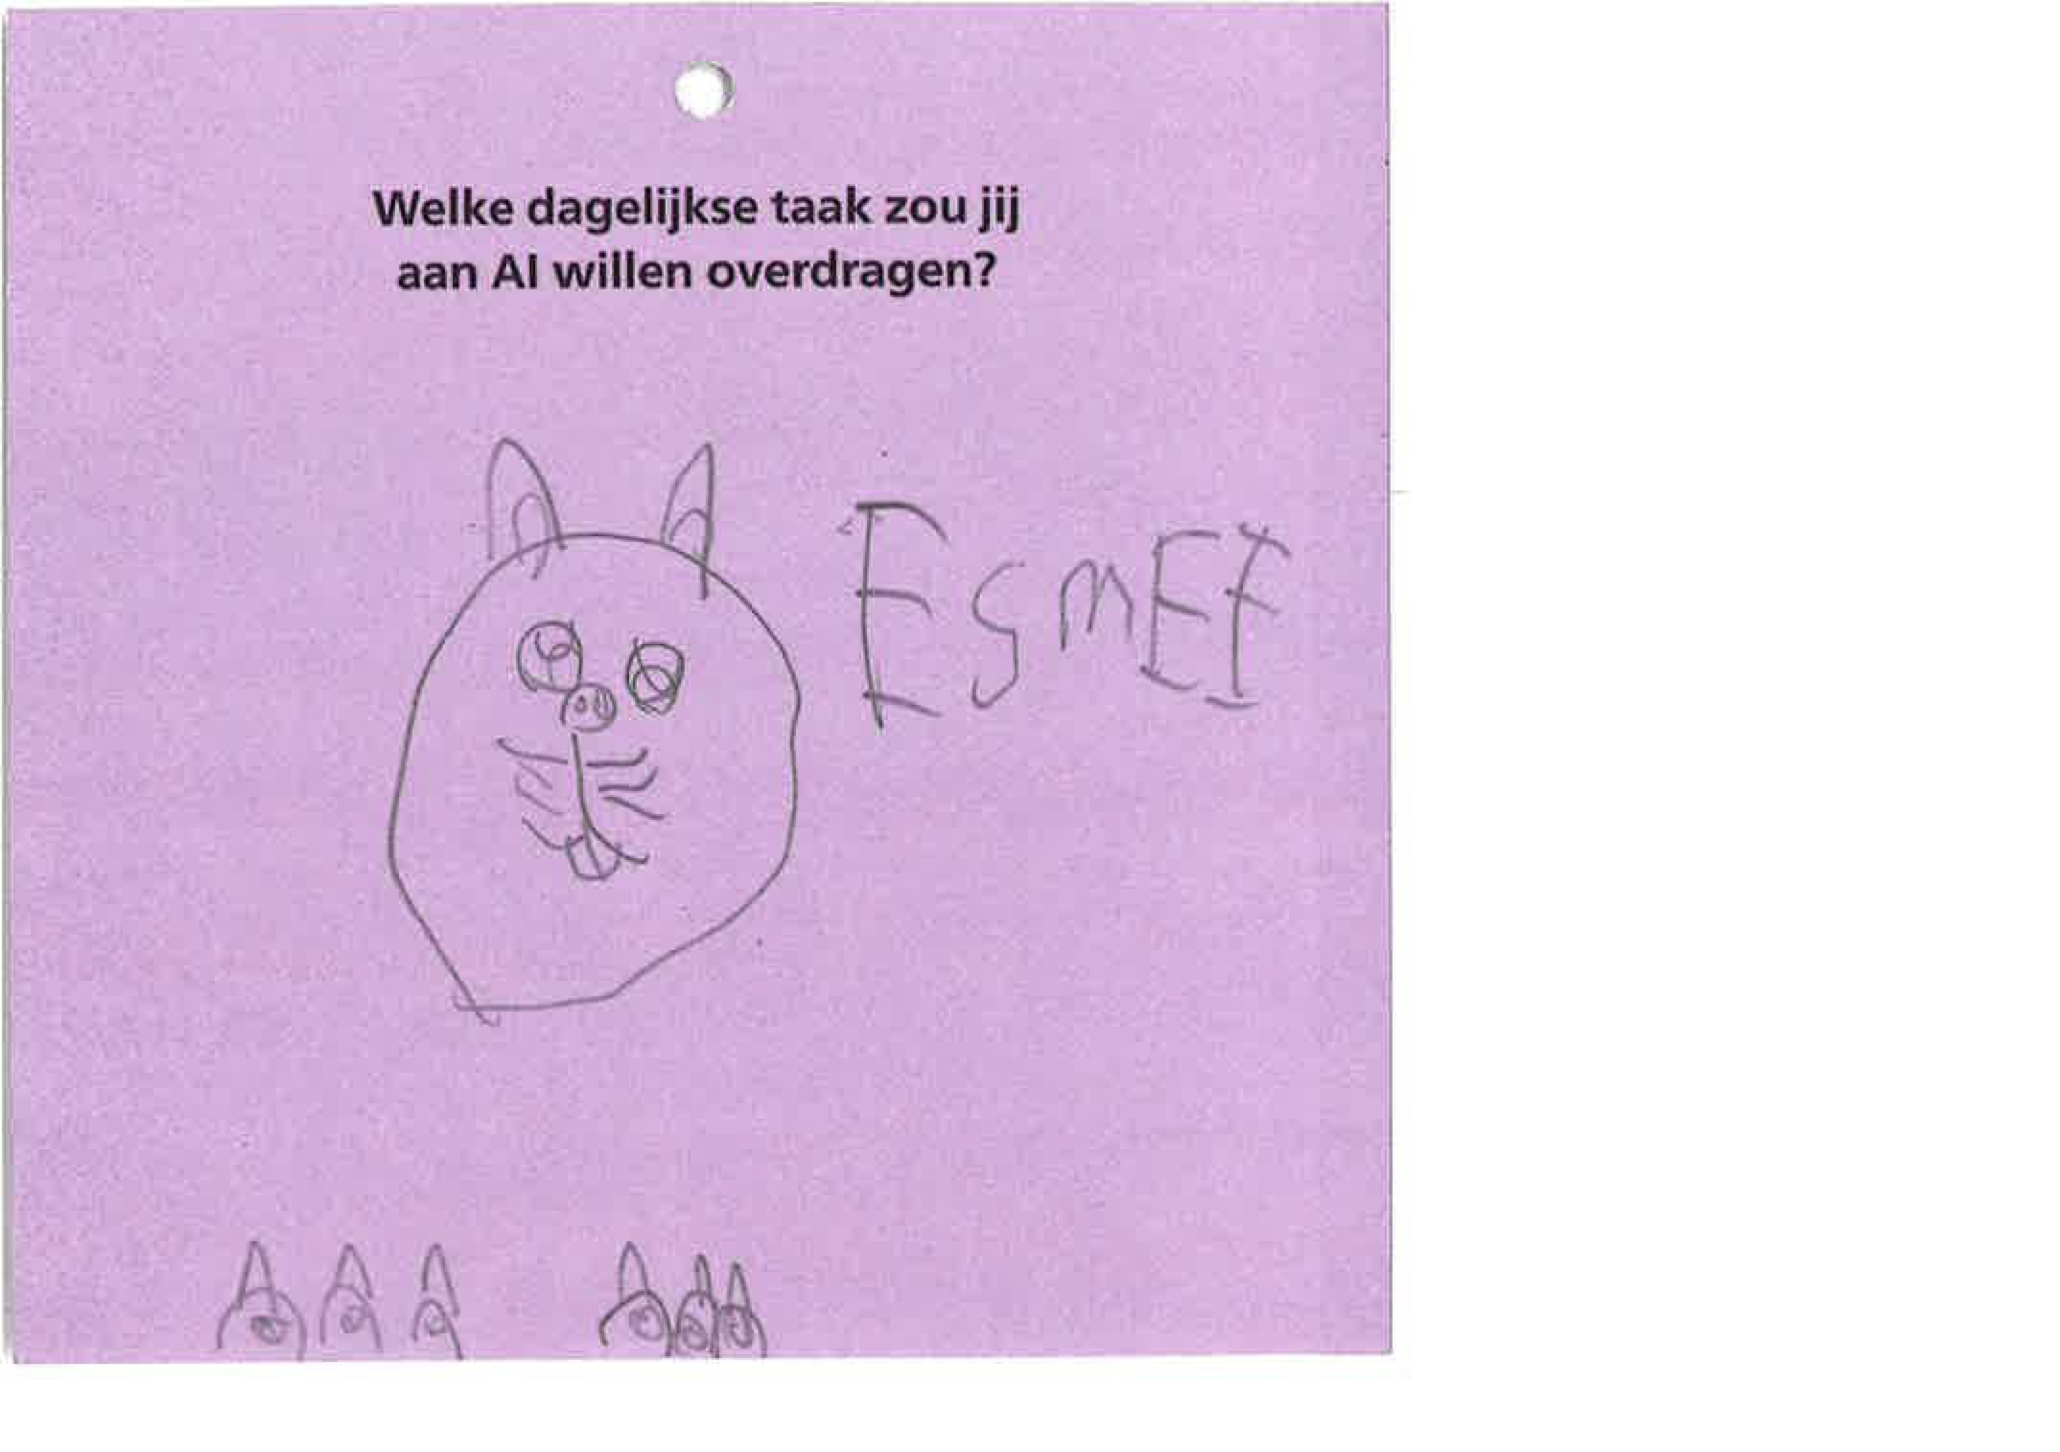 Welke dagelijkse taak zou jij
aan AI willen overdragen?
EsmEE